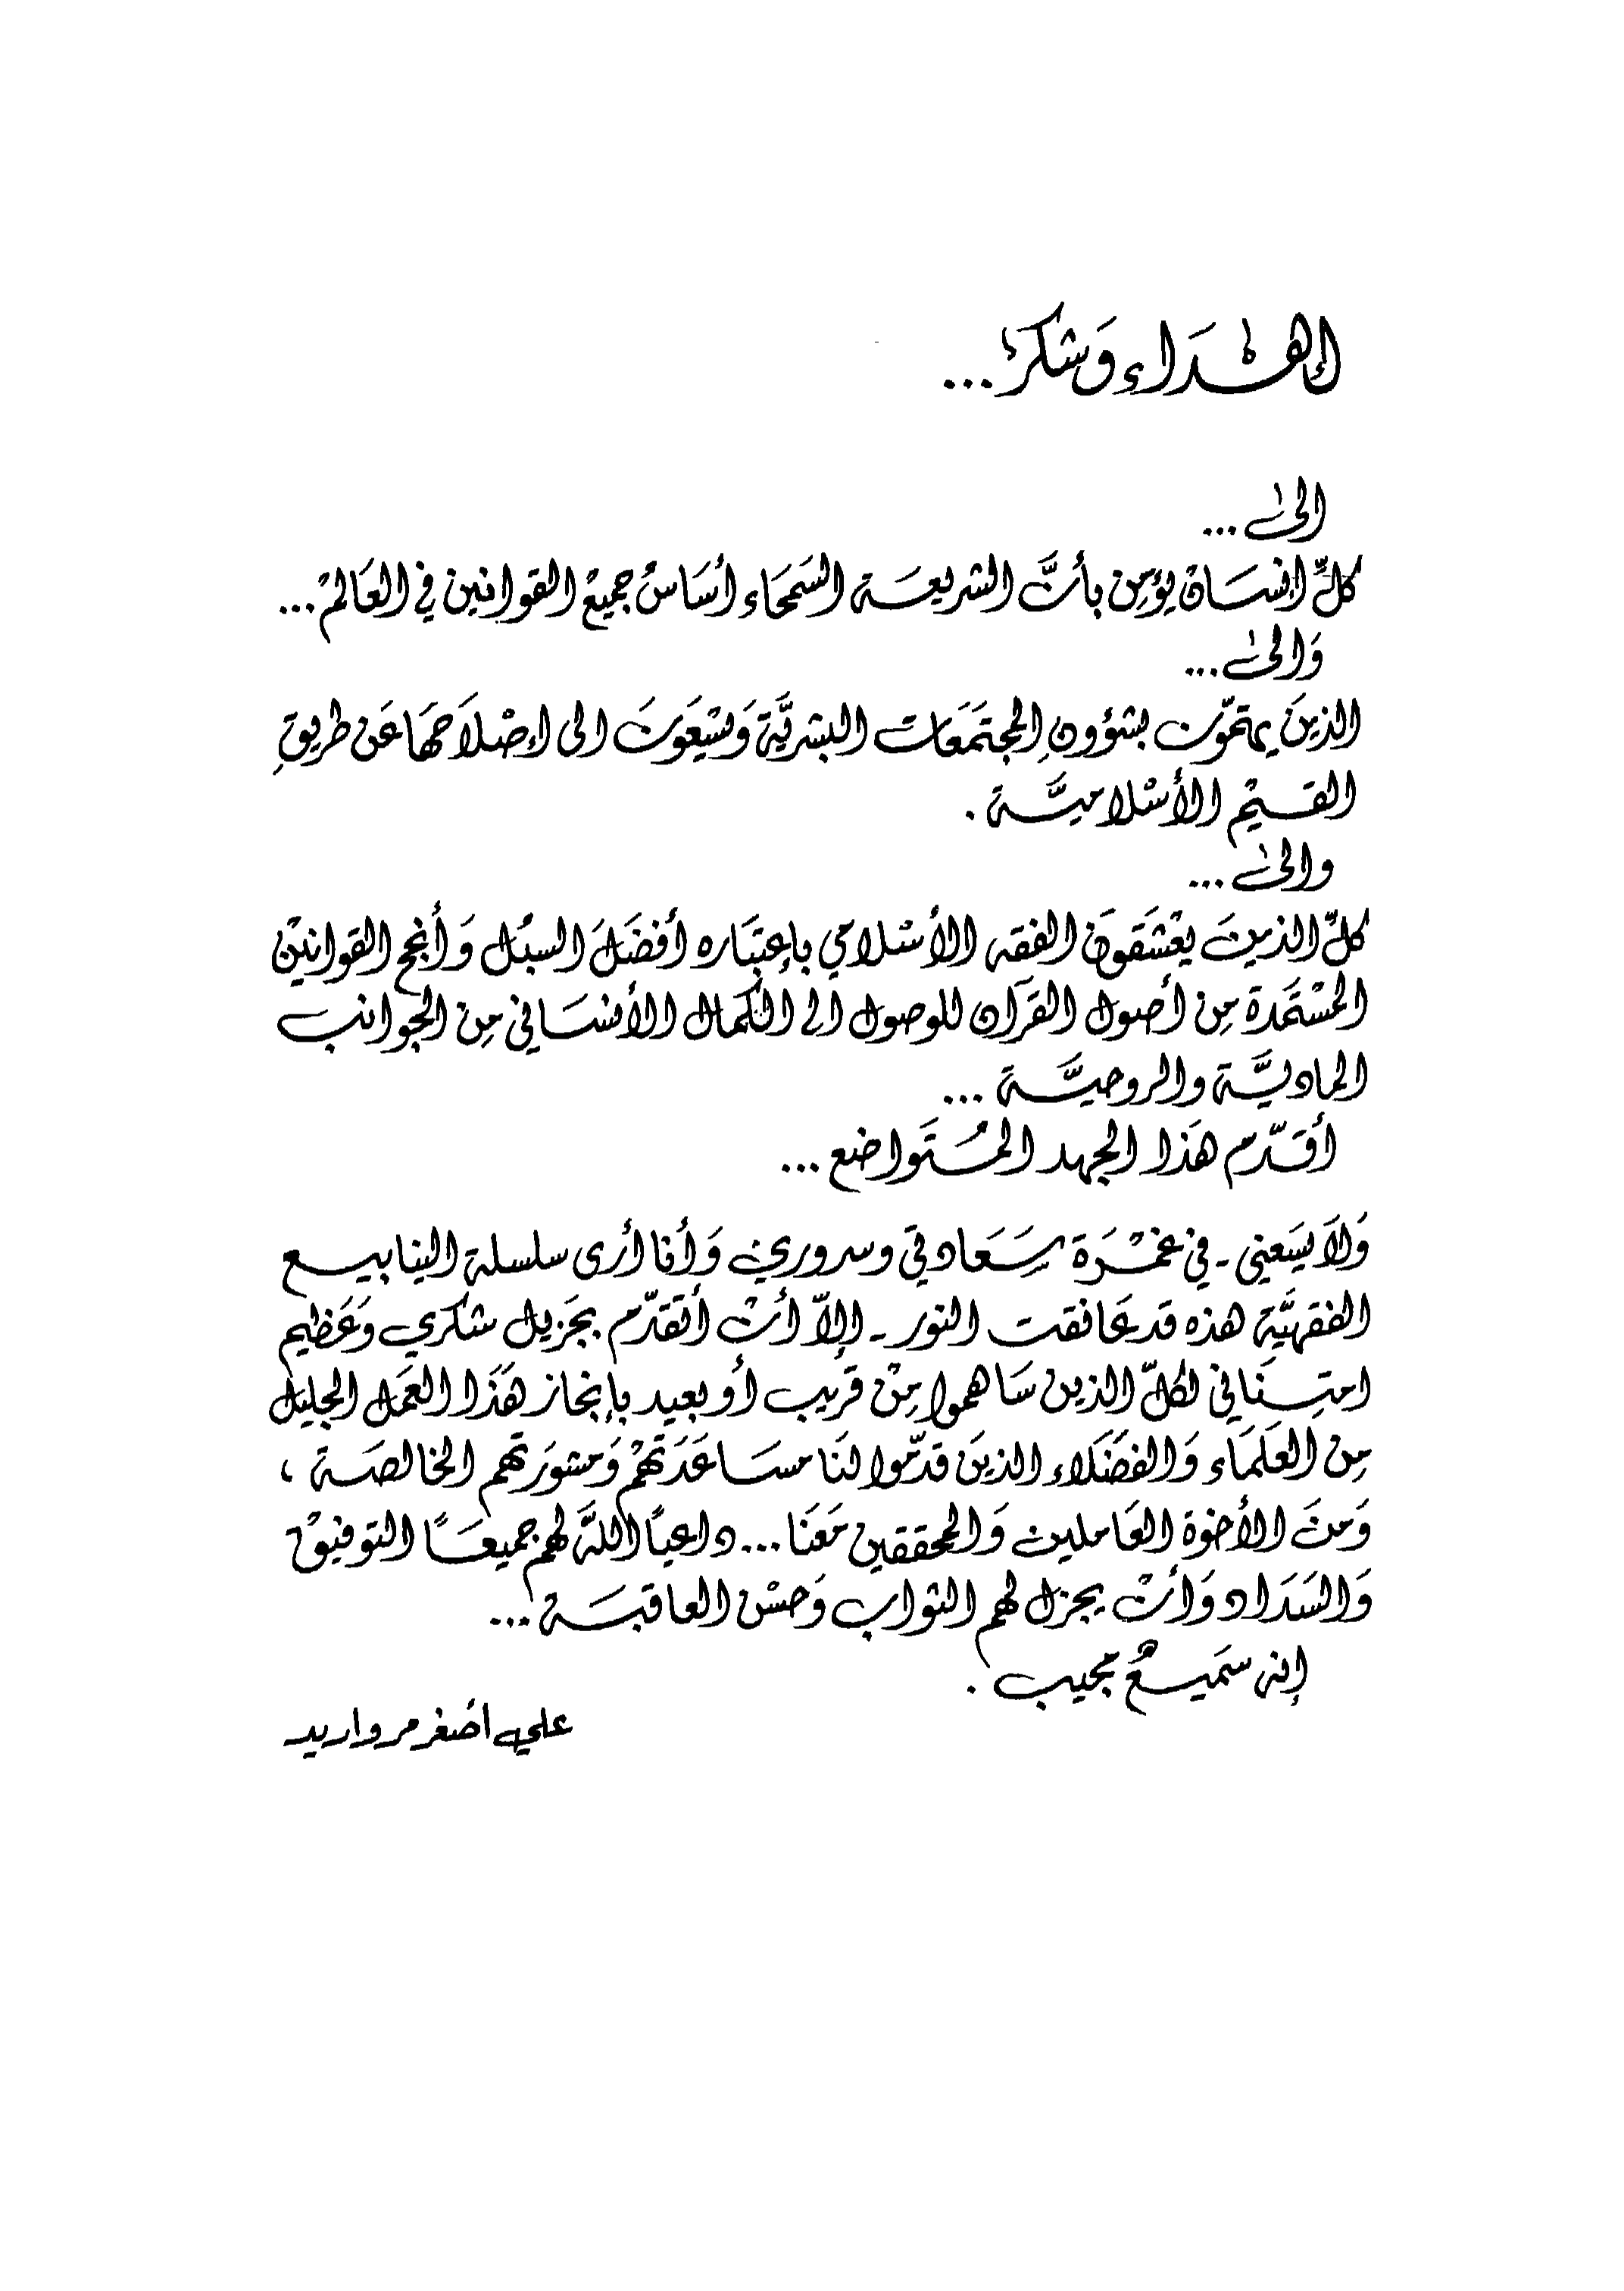 إهْدَاء وَشكر...
الىٰ ...
كلِّ انسَان يؤمِن بأنَّ الشريعَة السَمحَاء أسَاسُ جميعْ القوانين في العَالمْ ...
وَالىٰ ...
الذينَ يهتمّون بشؤونِ المجتَمَعات البشريَّة وَيسْعَونَ الى إصْلاَحهَا عَن طريقِ
القيمْ الأسْلاميَّة .
والىٰ ...
كلّ الذينَ يعْشَقونَ الفقه الأسْلامي بإعتبَاره أفضَلَ السبُل وَأنجح القوانيْن
المسْتَمَدة مِن أصول القرآن للوصول الى الكمال الأنسَاني مِن الجوانب
الماديَّة والروحيَّة ...
أقَدّم هَذا الجهد المُتَواضع ...
وَلاَ يسَعني - في غمْرَة سَعَادتي وسروري وَأنا أرى سلسلة الينابيع
الفقهيَّة هذه قد عَانقت النور - إلاّ أنْ أتقدّم بجَزيل شكري وَعَظيم
امتِنَاني لكلّ الذين سَاهموا مِنْ قريب أو بعيد بإنجاز هَذَا العَمَل الجليل
مِن العلَمَاء وَالفضَلاء الذينَ قدّموا لنَا مسَاعَدَتهمْ وَمشورَتهم الخالصَة ،
وَمنَ الأخوة العَاملين وَالمحققين مَعَنَا ... داعياً اللَّه لهم جميعَاً التوفيقْ
وَالسَدَاد وَأنْ يجزل لهم الثواب وَحسْن العاقبَة ...
إنه سَميعٌ مجيب .
علي اصْغر مرواريد